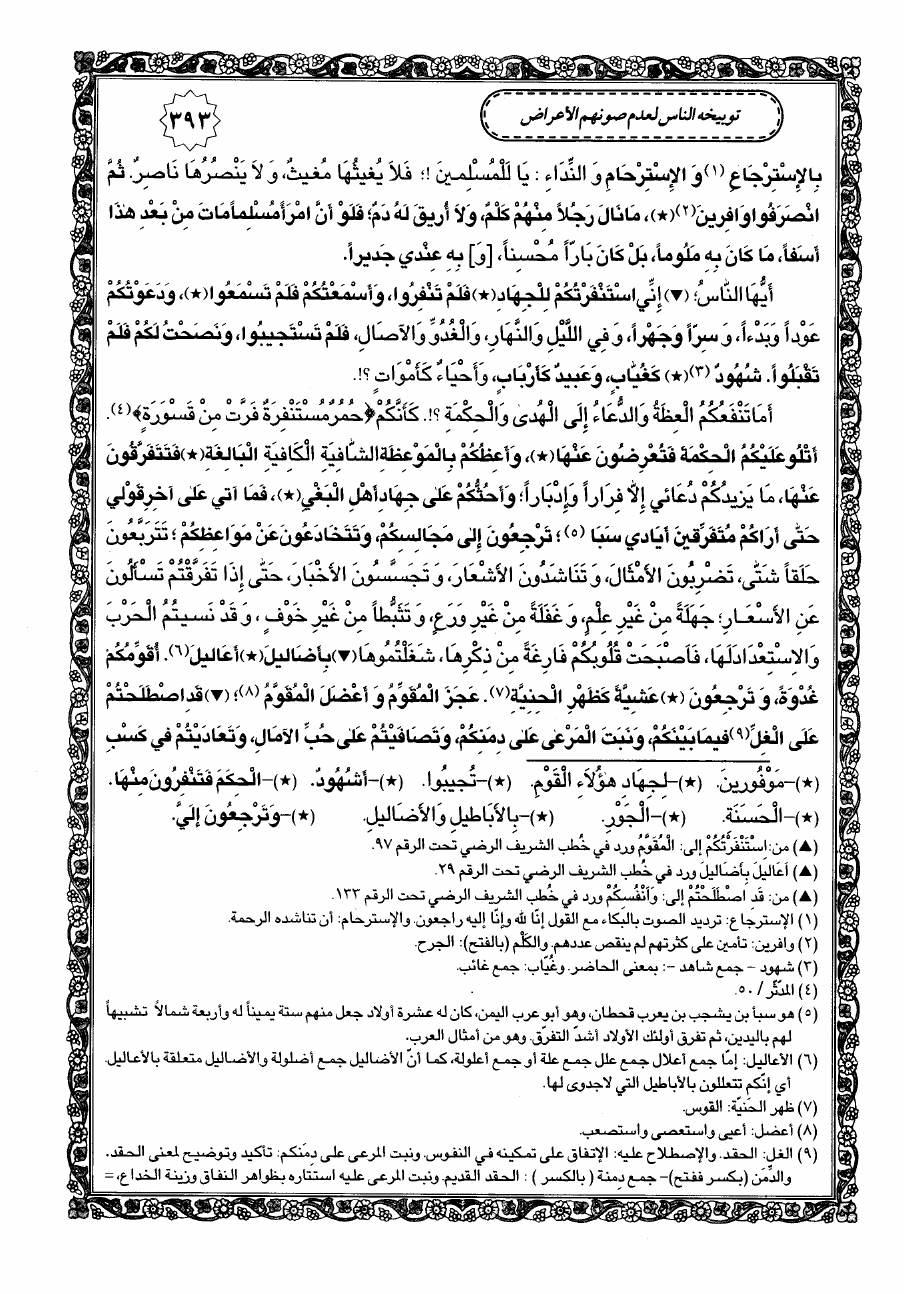 توبيخه الناس لعدم صونهم الأعراض
٣٩٣
بِالإِسْتِرْجَاعِ (١) وَ الإِسْتِرْحَامِ وَ النِّدَاءِ : يَا لَلْمُسْلِمينَ !؛ فَلاَ يُغيثُهَا مُغيثٌ، وَ لاَ يَنْصُرُهَا نَاصِرٌ. ثُمَّ
انْصَرَفُوا وَافِرينَ(٢)(★)، مَا نَالَ رَجُلاً مِنْهُمْ كَلْمٌ، وَلاَ أُريقَ لَهُ دَمٌ؛ فَلَوْ أَنَّ امْرَأً مُسْلِماً مَاتَ مِنْ بَعْدِ هٰذَا
أَسَفاً، مَا كَانَ بِهِ مَلُوماً، بَلْ كَانَ بَارّاً مُحْسِناً، [وَ] بِهِ عِنْدي جَديراً.
أَيُّهَا النَّاسُ؛ (▼) إِنِّي اسْتَنْفَرْتُكُمْ لِلْجِهَادِ(★) فَلَمْ تَنْفِرُوا، وَأَسْمَعْتُكُمْ فَلَمْ تَسْمَعُوا(★)، وَدَعَوْتُكُمْ
عَوْداً وَبَدْءاً، وَ سِرّاً وَجَهْراً، وَ فِي اللَّيْلِ وَالنَّهَارِ، وَالْغُدُوِّ وَالآصَالِ، فَلَمْ تَسْتَجيبُوا، وَنَصَحْتُ لَكُمْ فَلَمْ
تَقْبَلُوا. شُهُودٌ (٣)(★) كَغُيَّابٍ، وَعَبيدٌ كَأَرْبَابٍ، وَأَحْيَاءٌ كَأَمْوَاتٍ ؟!.
أَمَا تَنْفَعُكُمُ الْعِظَةُ وَالدُّعَاءُ إِلَى الْهُدىٰ وَالْحِكْمَةِ ؟!. كَأَنَّكُمْ ﴿حُمُرٌ مُسْتَنْفِرَةٌ فَرَّتْ مِنْ قَسْوَرَةٍ﴾ (٤).
أَتْلُو عَلَيْكُمُ الْحِكْمَةَ فَتُعْرِضُونَ عَنْهَا(★)، وَأَعِظُكُمْ بِالْمَوْعِظَةِ الشَّافِيَةِ الْكَافِيَةِ الْبَالِغَةِ(★) فَتَتَفَرَّقُونَ
عَنْهَا، مَا يَزيدُكُمْ دُعَائي إِلاَّ فِرَاراً وَإِدْبَاراً؛ وَأَحُثُّكُمْ عَلىٰ جِهَادِ أَهْلِ الْبَغْيِ(★)، فَمَا آتي عَلىٰ آخِرِ قَوْلي
حَتّىٰ أَرَاكُمْ مُتَفَرِّقينَ أَيَادي سَبَا (٥)؛ تَرْجِعُونَ إِلىٰ مَجَالِسِكُمْ، وَتَتَخَادَعُونَ عَنْ مَوَاعِظِكُمْ؛ تَتَرَبَّعُونَ
حَلَقاً شَتّىٰ، تَضْرِبُونَ الأَمْثَالَ، وَ تَنَاشَدُونَ الأَشْعَارَ، وَ تَجَسَّسُونَ الأَخْبَارَ، حَتّىٰ إِذَا تَفَرَّقْتُمْ تَسْأَلُونَ
عَنِ الأَسْعَارِ؛ جَهَلَةً مِنْ غَيْرِ عِلْمٍ، وَ غَفْلَةً مِنْ غَيْرِ وَرَعٍ، وَ تَثَبُّطاً مِنْ غَيْرِ خَوْفٍ، وَ قَدْ نَسيتُمُ الْحَرْبَ
وَالاِسْتِعْدَادَ لَهَا، فَأَصْبَحَتْ قُلُوبُكُمْ فَارِغَةً مِنْ ذِكْرِهَا، شَغَلْتُمُوهَا (▼) بِأَضَاليلَ(★) أَعَاليلَ(٦). أُقَوِّمُكُمْ
غُدْوَةً، وَ تَرْجِعُونَ (★) عَشِيَّةً كَظَهْرِ الْحَنِيَّةِ(٧). عَجَزَ الْمُقَوِّمُ وَ أَعْضَلَ الْمُقَوَّمُ (٨)؛ (▼) قَدِ اصْطَلَحْتُمْ
عَلَى الْغِلِّ(٩) فيمَا بَيْنَكُمْ، وَنَبَتَ الْمَرْعىٰ عَلىٰ دِمَنِكُمْ، وَتَصَافَيْتُمْ عَلىٰ حُبِّ الآمَالِ، وَتَعَادَيْتُمْ في كَسْبِ
(★)-مَوْفُورينَ. (★)-لِجِهَادِ هٰؤُلاَءِ الْقَوْمِ. (★)-تُجيبُوا. (★)-أَشُهُودٌ. (★)-الْحِكَمَ فَتَنْفِرُونَ مِنْهَا.
(★)-الْحَسَنَةِ. (★)-الْجَوْرِ. (★)-بِالأَبَاطيلِ وَالأَضَاليلِ. (★)-وَتَرْجِعُونَ إِلَيَّ.
(▲) من: اسْتَنْفَرْتُكُمْ إلى: الْمُقَوَّمُ ورد في خُطب الشريف الرضي تحت الرقم ٩٧.
(▲) أَعَاليلَ بِأَضَاليلَ ورد في خُطب الشريف الرضي تحت الرقم ٢٩.
(▲) من: قَدِ اصْطَلَحْتُمْ إلى: وَأَنْفُسِكُمْ ورد في خُطب الشريف الرضي تحت الرقم ١٣٣.
(١) الإسترجاع: ترديد الصوت بالبكاء مع القول إنّا لله وإنّا إليه راجعون. والإسترحام: أن تناشده الرحمة.
(٢) وافرين: تأمين على كثرتهم لم ينقص عددهم. والكَلْم (بالفتح): الجرح.
(٣) شهود - جمع شاهد -: بمعنى الحاضر. وغُيّاب: جمع غائب.
(٤) المدّثّر / ٥٠.
(٥) هو سبأ بن يشجب بن يعرب قحطان، وهو أبو عرب اليمن، كان له عشرة أولاد جعل منهم ستة يميناً له وأربعة شمالاً تشبيهاً
لهم باليدين، ثم تفرق أولئك الأولاد أشدّ التفرّق. وهو من أمثال العرب.
(٦) الأعاليل: إمّا جمع أعلال جمع علل جمع علة أو جمع أعلولة، كما أنّ الأضاليل جمع أضلولة والأضاليل متعلقة بالأعاليل.
أي إنّكم تتعللون بالأباطيل التي لاجدوى لها.
(٧) ظهر الحَنيّة: القوس.
(٨) أعضل: أعيى واستعصى واستصعب.
(٩) الغل: الحقد. والإصطلاح عليه: الإتفاق على تمكينه في النفوس. ونبت المرعى على دِمنَكم: تأكيد وتوضيح لمعنى الحقد.
والدِّمَن (بكسر ففتح)- جمع دِمنة ( بالكسر ) : الحقد القديم. ونبت المرعى عليه استتاره بظواهر النفاق وزينة الخداع، =